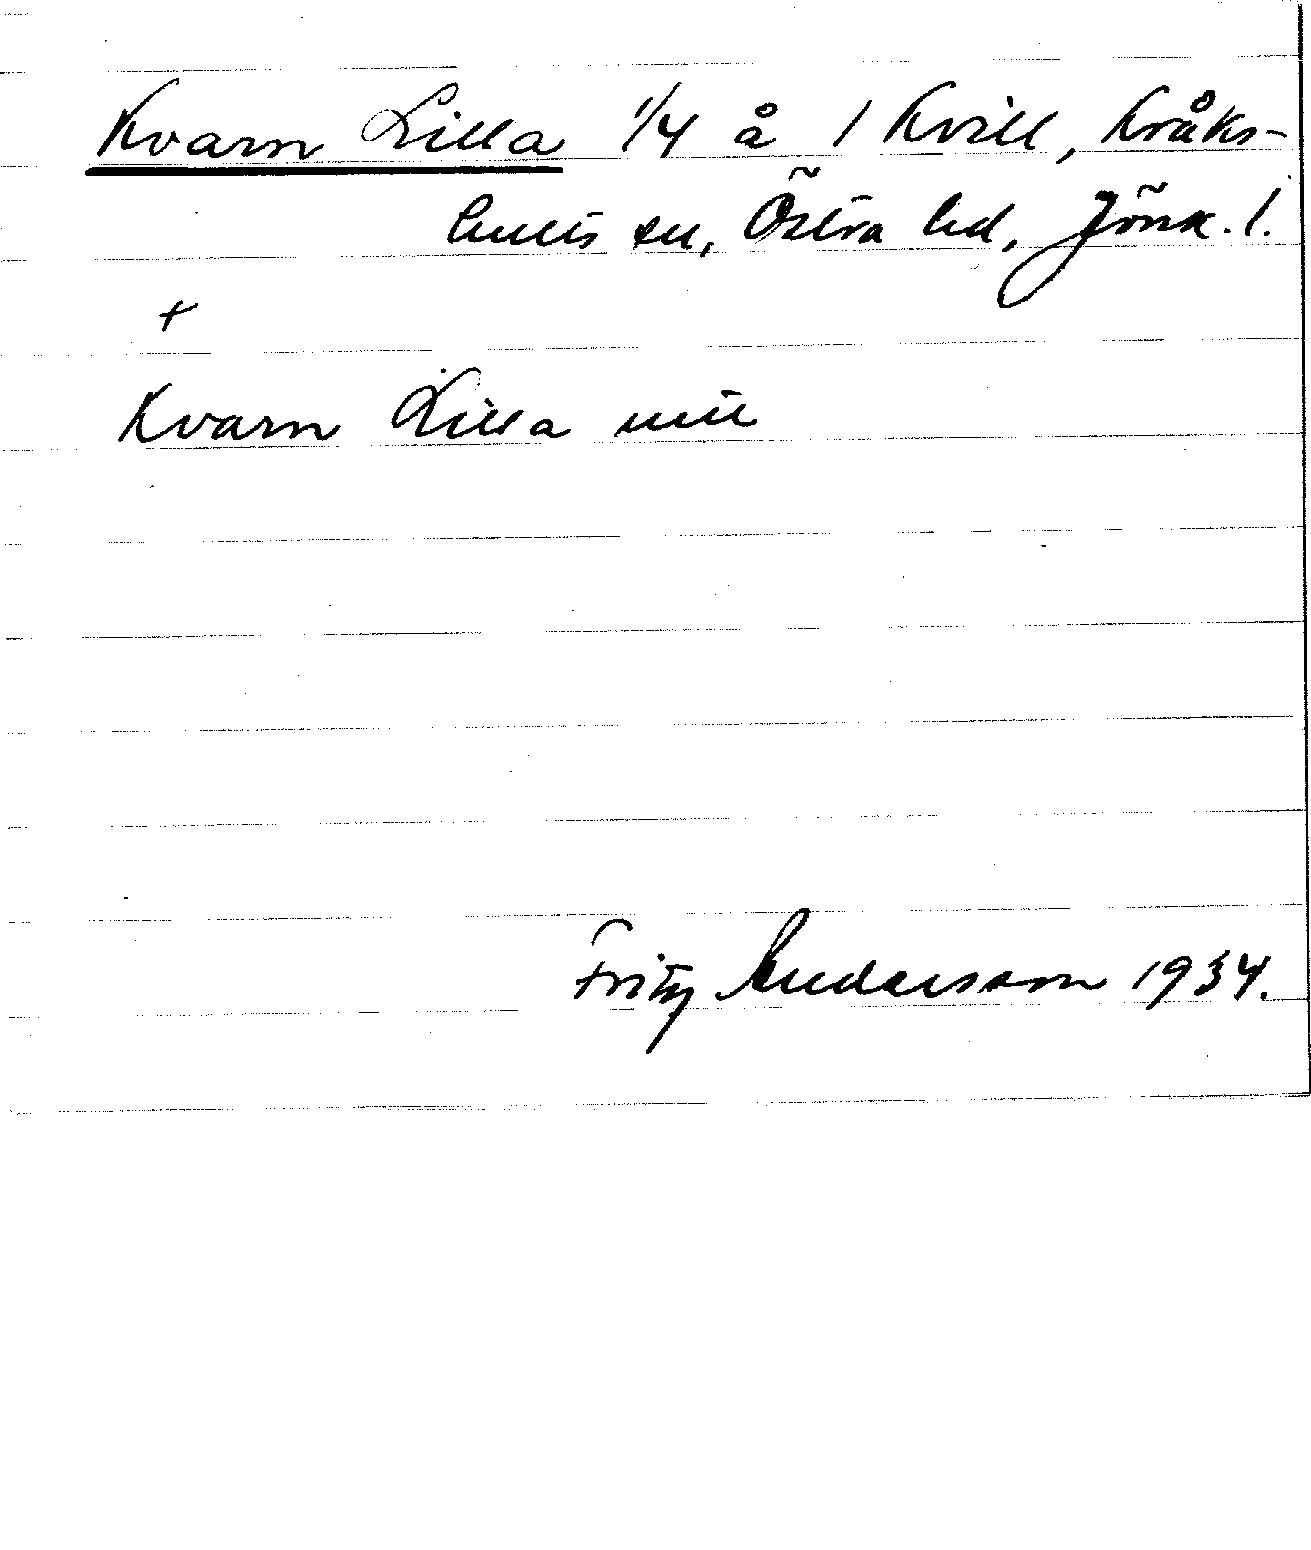 Kvarn Lilla 1/4 å 1 Kvill, Kråks-
hults sn, Östra hd, Jönk. l.
+
Kvarn Lilla
Fritz Andersson 1934.